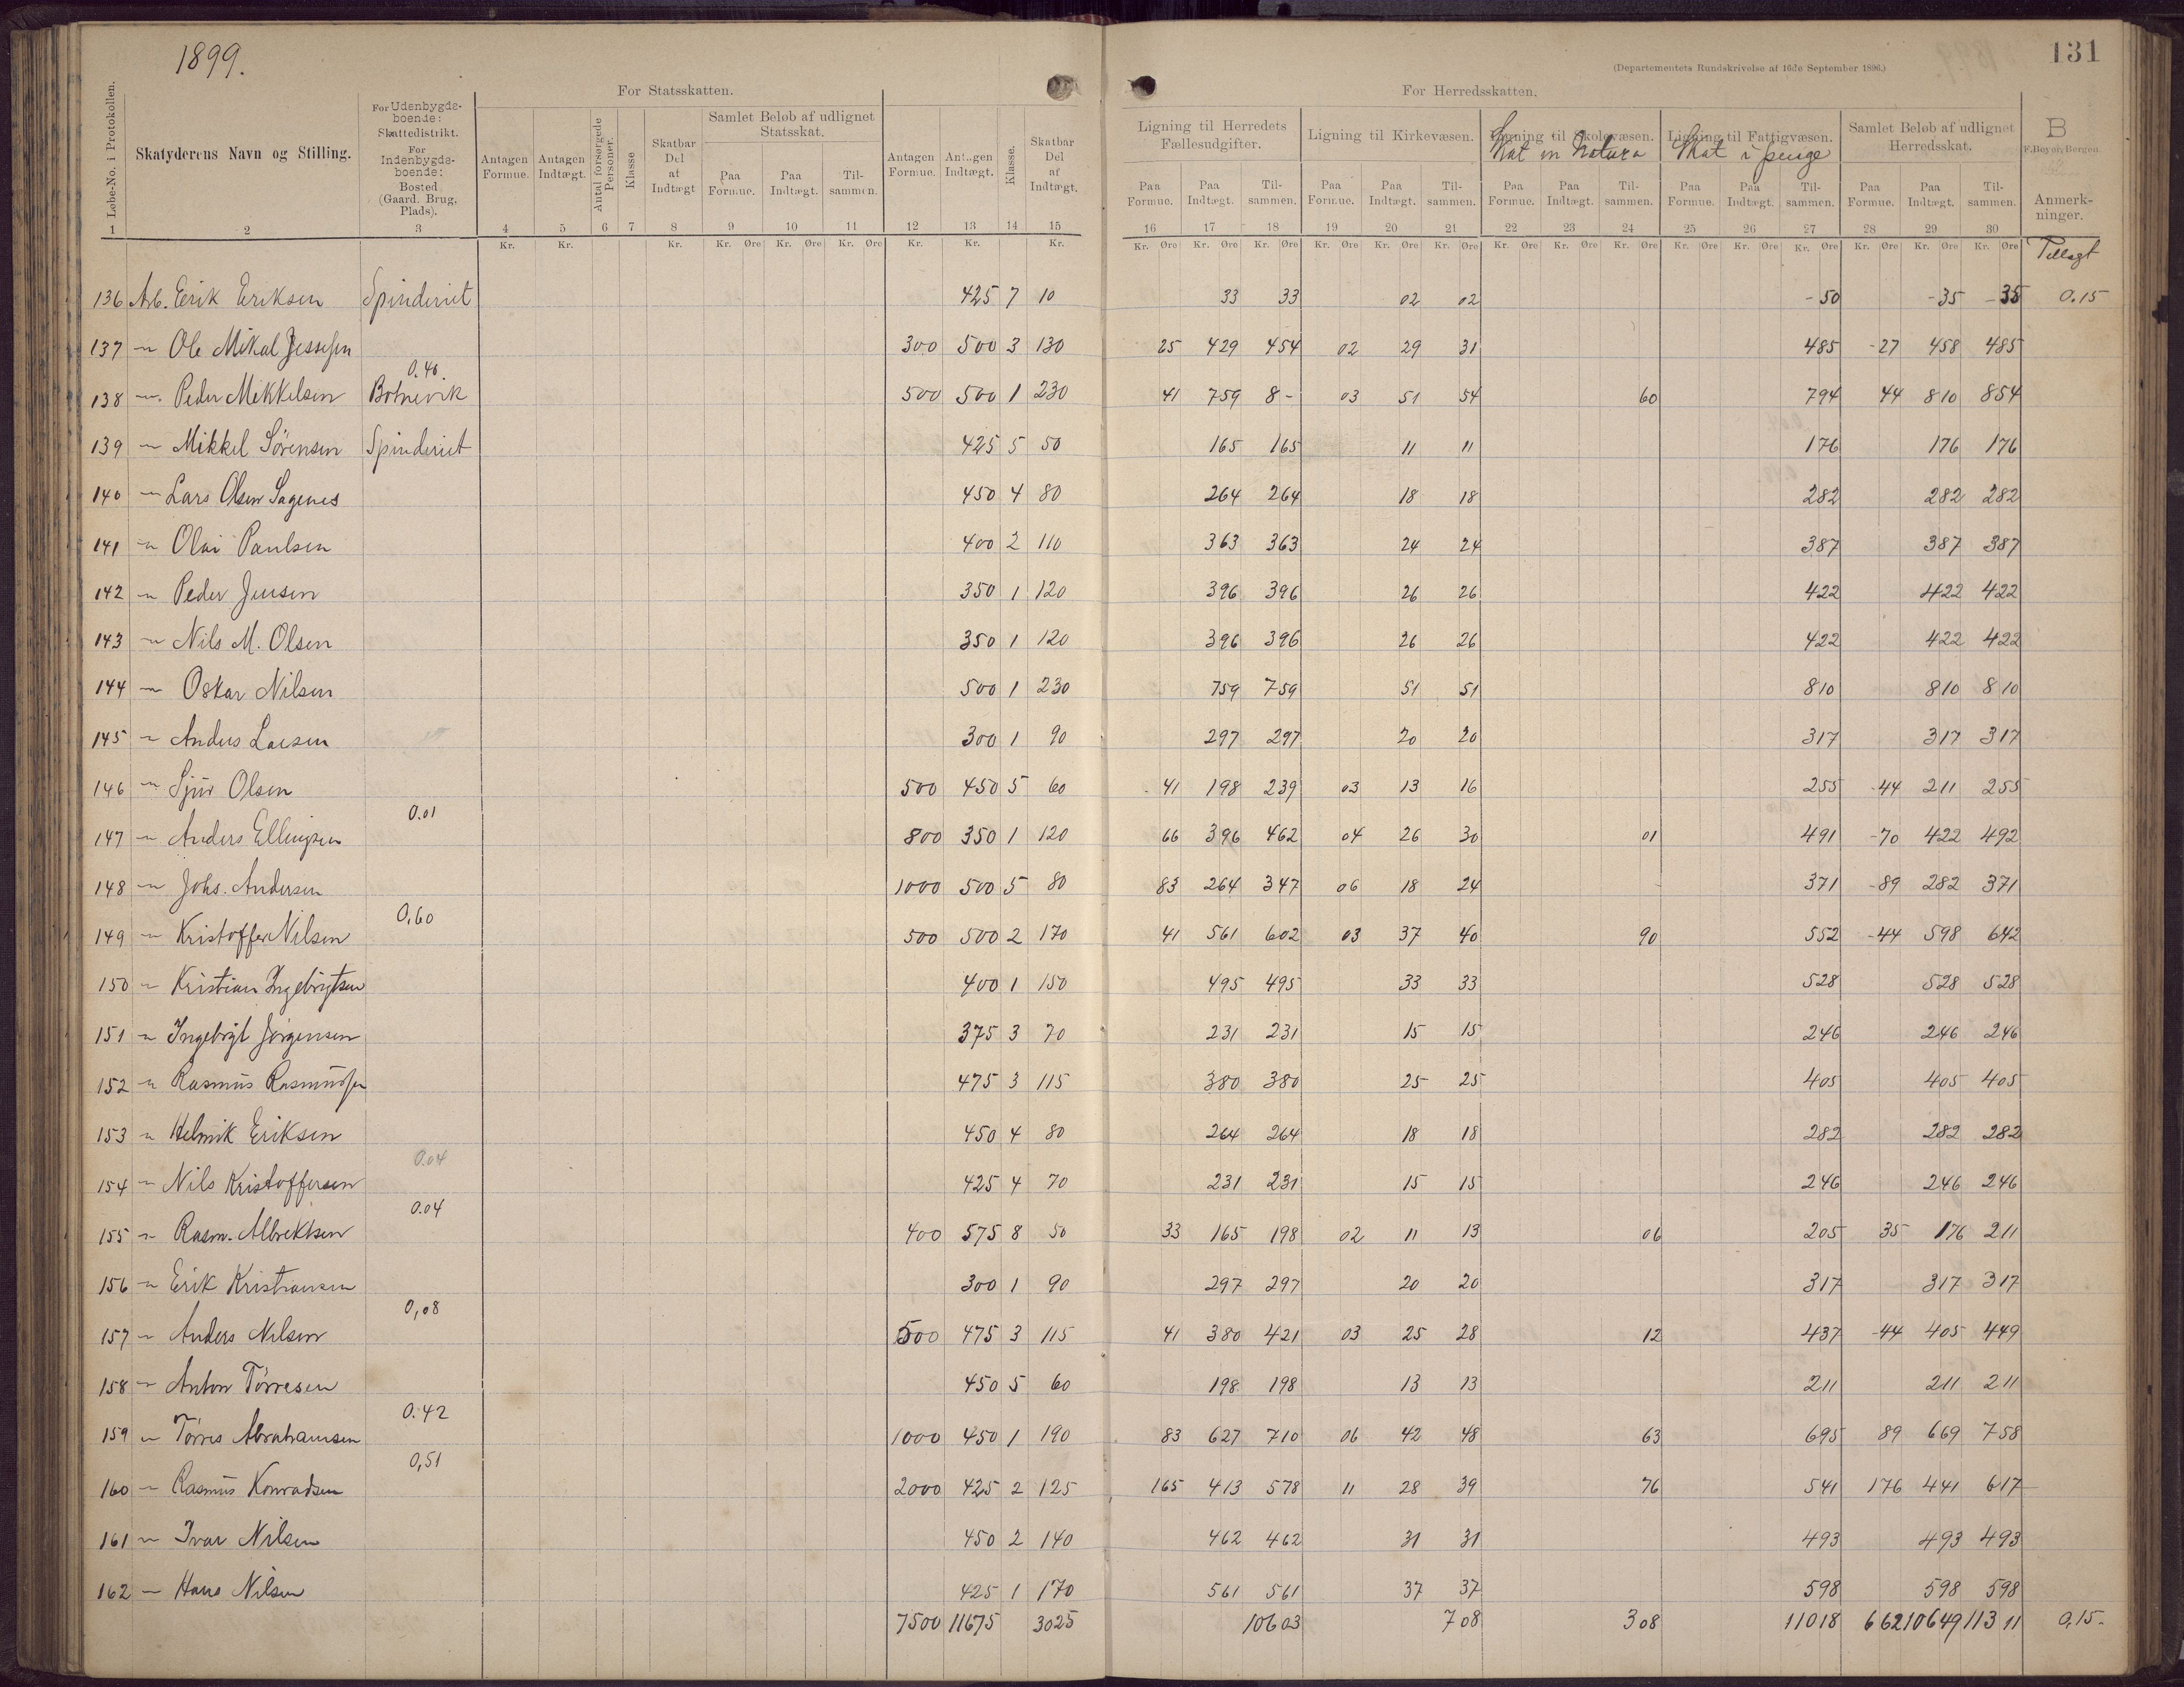 1899.
131
(Departementets Rundskrivelse af 16de September 1896.)
For Statsskatten.
For Herredsskatten.
Løbe-No. i Protokollen.
Skatyderens Navn og Stilling.
For Udenbygdsboende: Skattedistrikt. For Indenbygdsboende: Bosted (Gaard. Brug, Plads).
Antagen Formue.
Antagen Indtægt.
Antal forsørgede Personer.
Klasse
Skatbar Del af Indtægt
Samlet Beløb af udlignet Statsskat.
Paa Formue. Paa Indtægt. Tilsammen.
Antagen Formue.
Antagen Indtægt.
Klasse.
Skatbar Del af Indtægt.
Ligning til Herredets Fællesudgifter.
Paa Formue. Paa Indtægt. Tilsammen.
Ligning til Kirkevæsen.
Paa Formue. Paa Indtægt. Tilsammen.
Ligning til Skolevæsen.
Skat in Natura
Paa Formue. Paa Indtægt. Tilsammen.
Ligning til Fattigvæsen.
Skat i penge
Paa Formue. Paa Indtægt. Tilsammen.
Samlet Beløb af udlignet Herredsskat.
Paa Formue. Paa Indtægt. Tilsammen.
B
F. Beyer, Bergen.
Anmerkninger.
1 2 3 4 5 6 7 8 9 10 11 12 13 14 15 16 17 18 19 20 21 22 23 24 25 26 27 28 29 30
Kr. Kr. Kr. Kr. Øre Kr. Øre Kr. Øre Kr. Kr. Kr. Kr. Øre Kr. Øre Kr. Øre Kr. Øre Kr. Øre Kr. Øre Kr. Øre Kr. Øre Kr. Øre Kr. Øre Kr. Øre Kr. Øre Kr. Øre Kr. Øre Kr. Øre
Tillagt
136 Arb. Erik Eriksen Spinderiet 425 7 10 33 33 02 02 -50 -35 -35 0.15
137 " Ole Mikal Jessesen 300 500 3 130 25 429 454 02 29 31 485 -27 458 485
0.40
138 " Peder Mikkelsen Botnevik 500 500 1 230 41 759 8- 03 51 54 60 794 44 810 854
139 " Mikkel Sörensen Spinderiet 425 5 50 165 165 11 11 176 176 176
140 " Lars Olsen Sagenes 450 4 80 264 264 18 18 282 282 282
141 " Olai Paulsen 400 2 110 363 363 24 24 387 387 387
142 " Peder Jensen 350 1 120 396 396 26 26 422 422 422
143 " Nils M. Olsen 350 1 120 396 396 26 26 422 422 422
144 " Oskar Nilsen 500 1 230 759 759 51 51 810 810 810
145 " Anders Larsen 300 1 90 297 297 20 20 317 317 317
146 " Sjur Olsen 500 450 5 60 41 198 239 03 13 16 255 -44 211 255
0.01
147 " Anders Ellingsen 800 350 1 120 66 396 462 04 26 30 01 491 -70 422 492
148 " Johs. Andersen 1000 500 5 80 83 264 347 06 18 24 371 -89 282 371
0,60
149 " Kristoffer Nilsen 500 500 2 170 41 561 602 03 37 40 90 552 -44 598 642
150 " Kristian Ingebrigtsen 400 1 150 495 495 33 33 528 528 528
151 " Ingebrigt Jörgensen 375 3 70 231 231 15 15 246 246 246
152 " Rasmus Rasmussen 475 3 115 380 380 25 25 405 405 405
153 " Helmik Eriksen 450 4 80 264 264 18 18 282 282 282
0.04
154 " Nils Kristoffersen 425 4 70 231 231 15 15 246 246 246
0.04
155 " Rasm. Albrektsen 400 575 8 50 33 165 198 02 11 13 06 205 35 176 211
156 " Erik Kristiansen 300 1 90 297 297 20 20 317 317 317
0,08
157 " Anders Nilsen 500 475 3 115 41 380 421 03 25 28 12 437 -44 405 449
158 " Anton Törresen 450 5 60 198 198 13 13 211 211 211
0.42
159 " Törres Abrahamsen 1000 450 1 190 83 627 710 06 42 48 63 695 89 669 758
0,51
160 " Rasmus Konradsen 2000 425 2 125 165 413 578 11 28 39 76 541 176 441 617
161 " Ivar Nilsen 450 2 140 462 462 31 31 493 493 493
162 " Hans Nilsen 425 1 170 561 561 37 37 598 598 598
7500 11675 3025 10603 708 308 11018 662 10649 11311 0,15.